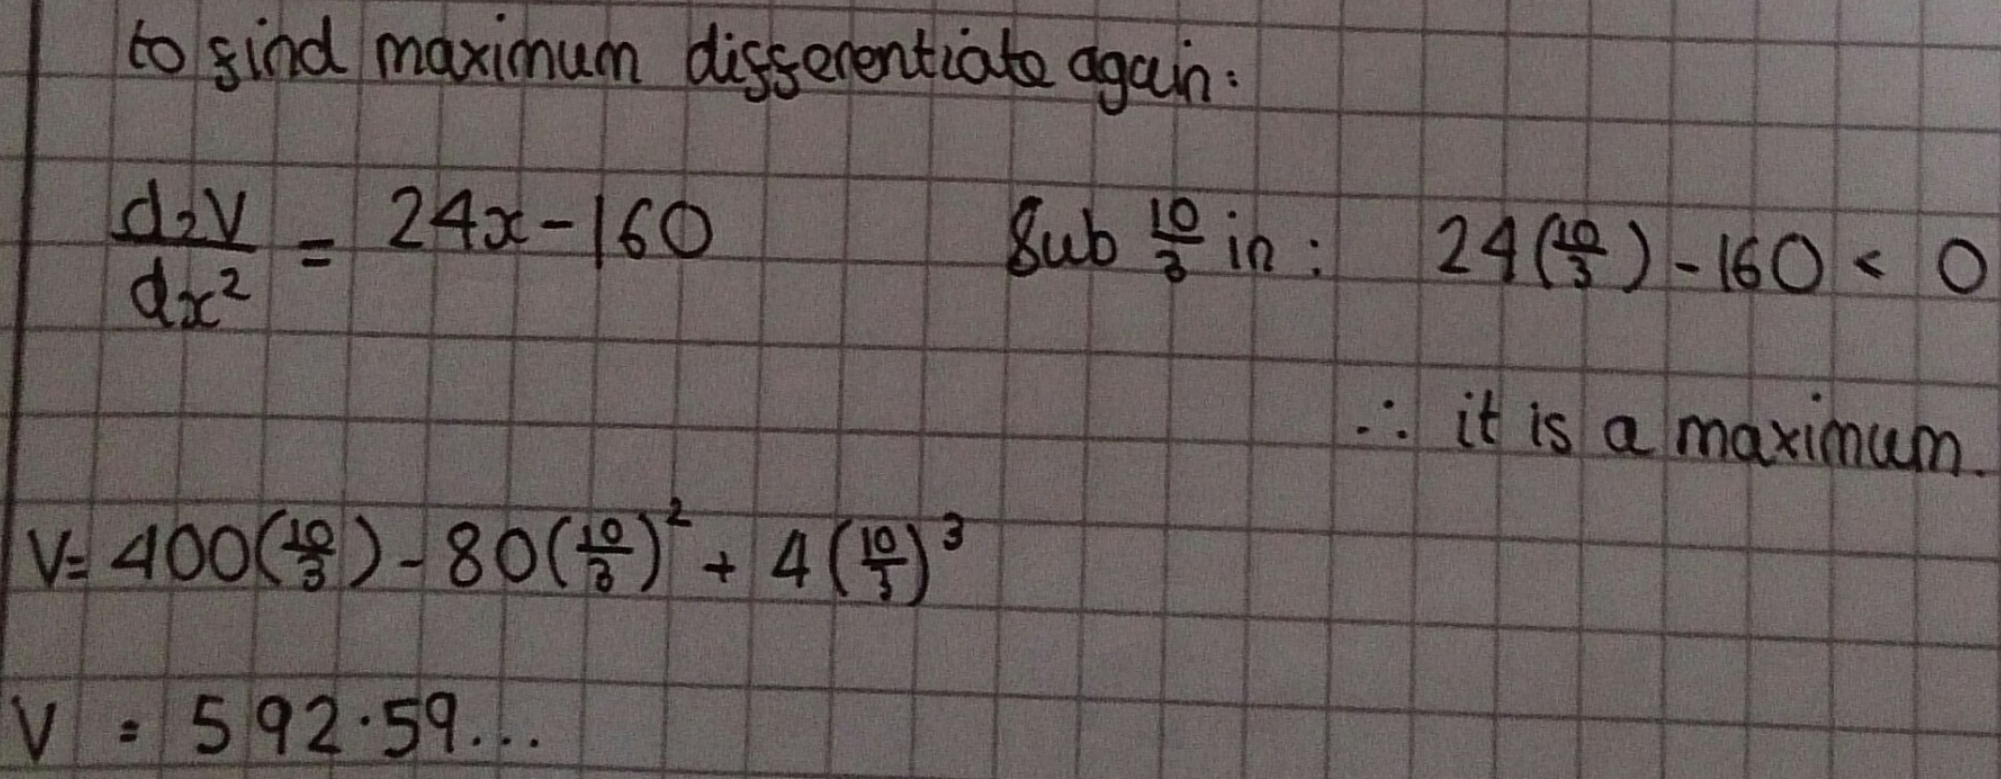 to find maximum differentiate again:
d2V/dx² = 24x - 160 Sub 10/3 in: 24(10/3) - 160 < 0
∴ it is a maximum.
V= 400(10/3) - 80(10/3)² + 4(10/3)³
V = 592.59...